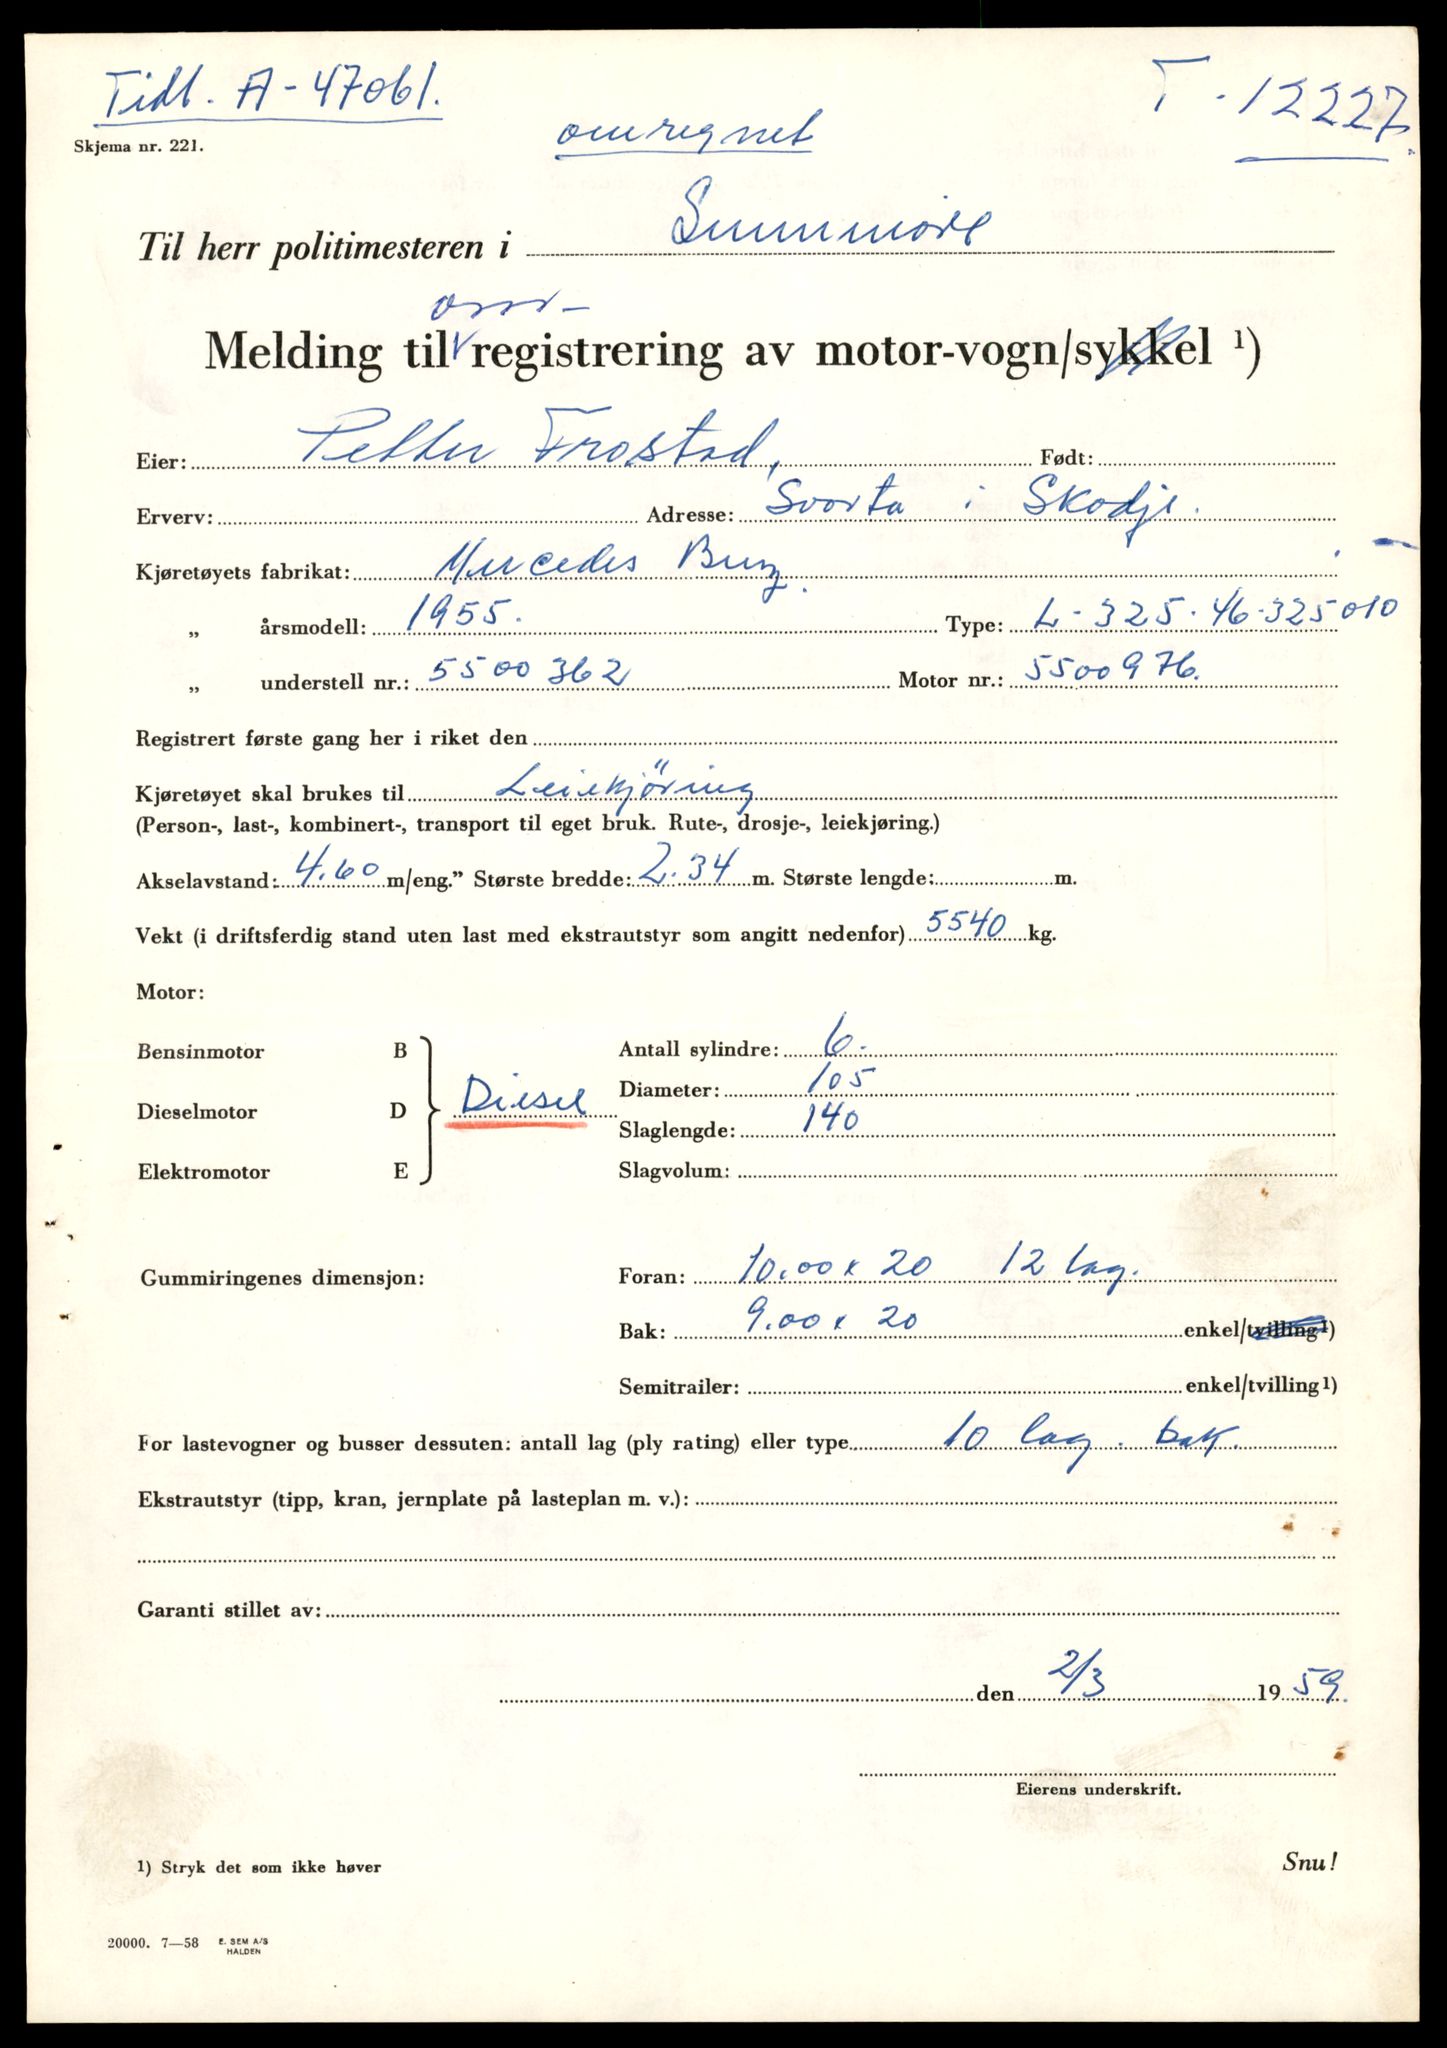 Tidl. A-47061.
T-12227.
Skjema nr. 221.
omregnet
Til herr politimesteren i Sunnmöre
om-
Melding til registrering av motor-vogn/sykkel ¹)
Eier: Petter Frostad, Født:
Erverv: Adresse: Svorta i Skodje.
Kjøretøyets fabrikat: Mercedes Benz.
„ årsmodell: 1955. Type: L-325-46-325010
„ understell nr.: 5500362 Motor nr.: 5500976.
Registrert første gang her i riket den
Kjøretøyet skal brukes til Leiekjöring
(Person-, last-, kombinert-, transport til eget bruk. Rute-, drosje-, leiekjøring.)
Akselavstand: 4.60 m/eng.” Største bredde: 2.34 m. Største lengde: m.
Vekt (i driftsferdig stand uten last med ekstrautstyr som angitt nedenfor) 5540 kg.
Motor:
Bensinmotor B Antall sylindre: 6.
Diameter: 105
Dieselmotor D Diesel
Slaglengde: 140
Elektromotor E Slagvolum:
Gummiringenes dimensjon: Foran: 10.00 x 20 12 lag.
Bak: 9.00 x 20 enkel/tvilling¹)
Semitrailer: enkel/tvilling¹)
For lastevogner og busser dessuten: antall lag (ply rating) eller type 10 lag. bak.
Ekstrautstyr (tipp, kran, jernplate på lasteplan m. v.):
Garanti stillet av:
den 2/3 1959.
Eierens underskrift.
¹) Stryk det som ikke høver
Snu!
20000. 7—58 E. SEM A/S
HALDEN